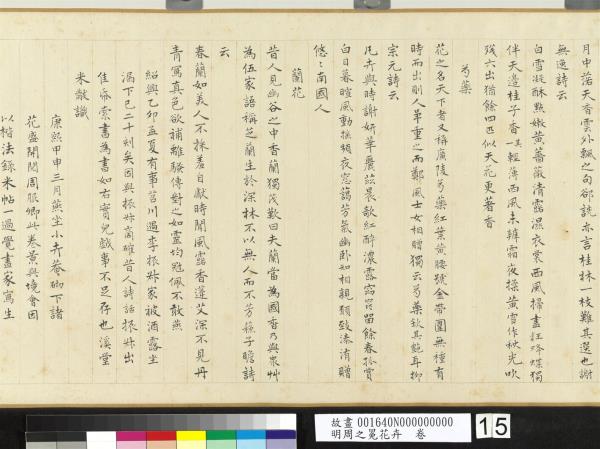 月中落天香雲外飄之句郤詵亦言桂林一枝難其選也謝
無逸詩云
白雪凝酥點嫩黃薔薇清露濕衣裳西風掃盡狂蜂蝶獨
伴天邊桂子香其二輕薄西風未辨霜夜揉黃雪作秋光吹
殘六出猶餘四匹似天花更著香
芍藥
花之名天下者又稱廣陵芍藥紅葉黃腰號金帶圍無種有
時而出則人爭重之而鄭風士女相贈獨云芍藥欽其範耳柳
宗元詩云
凡卉與時謝妍華麗茲晨欹紅醉濃露窈窕留餘春孤賞
白日暮暄風動搖頻夜窗藹芳氣幽卧知相親願致溱洧贈
悠〻南國人
蘭花
昔人見幽谷之中香蘭獨茂歎曰夫蘭當為國香乃與衆艸
為伍家語稱芝蘭生於深林不以無人而不芳蘇子瞻詩
云
春蘭如美人不採羞自獻時聞風露香蓬艾深不見丹
青寫真色欲補離騷傳對之如靈均冠佩不敢燕
紹興乙卯孟夏有事苕川過李振叔家被酒露坐
漏下已二十刻矣因與振叔商確昔人詩話振叔出
佳帋索書為書如右實兒戲事不足存也溪堂
米識
康熙甲申三月燕坐小卉菴砌下諸
花盛開閱周服卿此卷景與境會因
以楷法錄米帖一過覺畫家寫生
故畫 001640N000000000
明周之冕花卉 卷
15